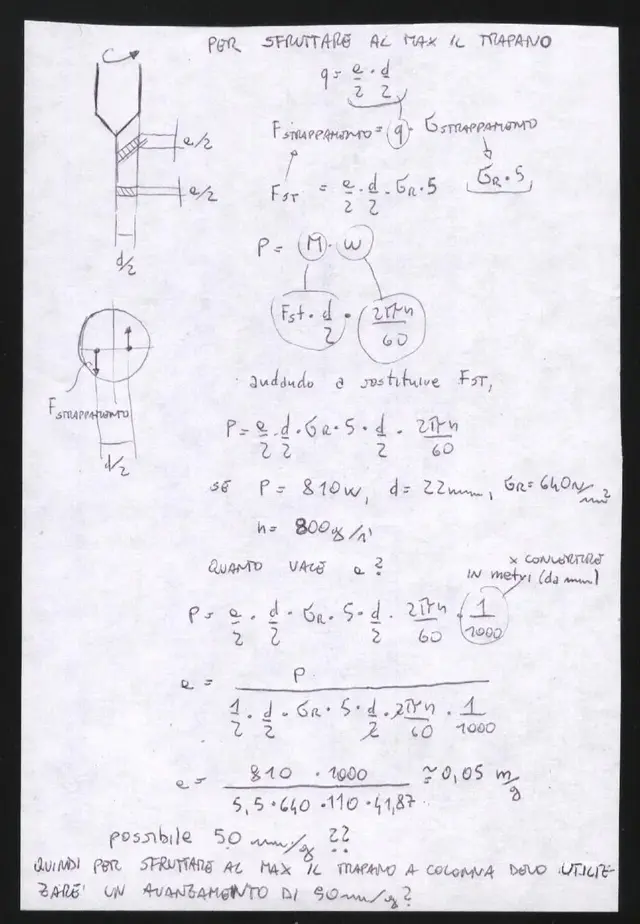 PER SFRUTTARE AL MAX IL TRAPANO
q = a/2 · d/2
F STRAPPAMENTO = q · σ STRAPPAMENTO
a/2
σR · 5
a/2
FST = a/2 · d/2 · σR · 5
P = M · W
d/2
Fst · d/2 · 2πn/60
andando a sostituire FST,
F STRAPPAMENTO
P = a/2 · d/2 · σR · 5 · d/2 · 2πn/60
d/2
SE P = 810W, d = 22mm, σR = 640N/mm²
n = 800g/1'
QUANTO VALE a?
x CONVERTIRE
IN metri (da mm)
P = a/2 · d/2 · σR · 5 · d/2 · 2πn/60 · 1/1000
a = P / (1/2 · d/2 · σR · 5 · d/2 · 2πn/60 · 1/1000)
a = 810 · 1000 / 5,5 · 640 · 110 · 41,87 ≅ 0,05 m/g
possibile 50 mm/g ??
QUINDI PER SFRUTTARE AL MAX IL TRAPANO A COLONNA DEVO UTILIZ-
ZARE UN AVANZAMENTO DI 50mm/g?